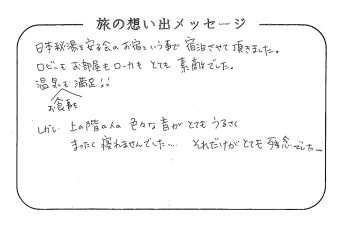 旅の想い出メッセージ
日本秘湯を守る会のお宿という事で宿泊させて頂きました。
ロビーもお部屋もローカもとても素敵でした。
温泉も満足!!
お食事も
しかし上の階の人の色々な音がとてもうるさく
まったく寝れませんでした…. それだけがとても残念でした…